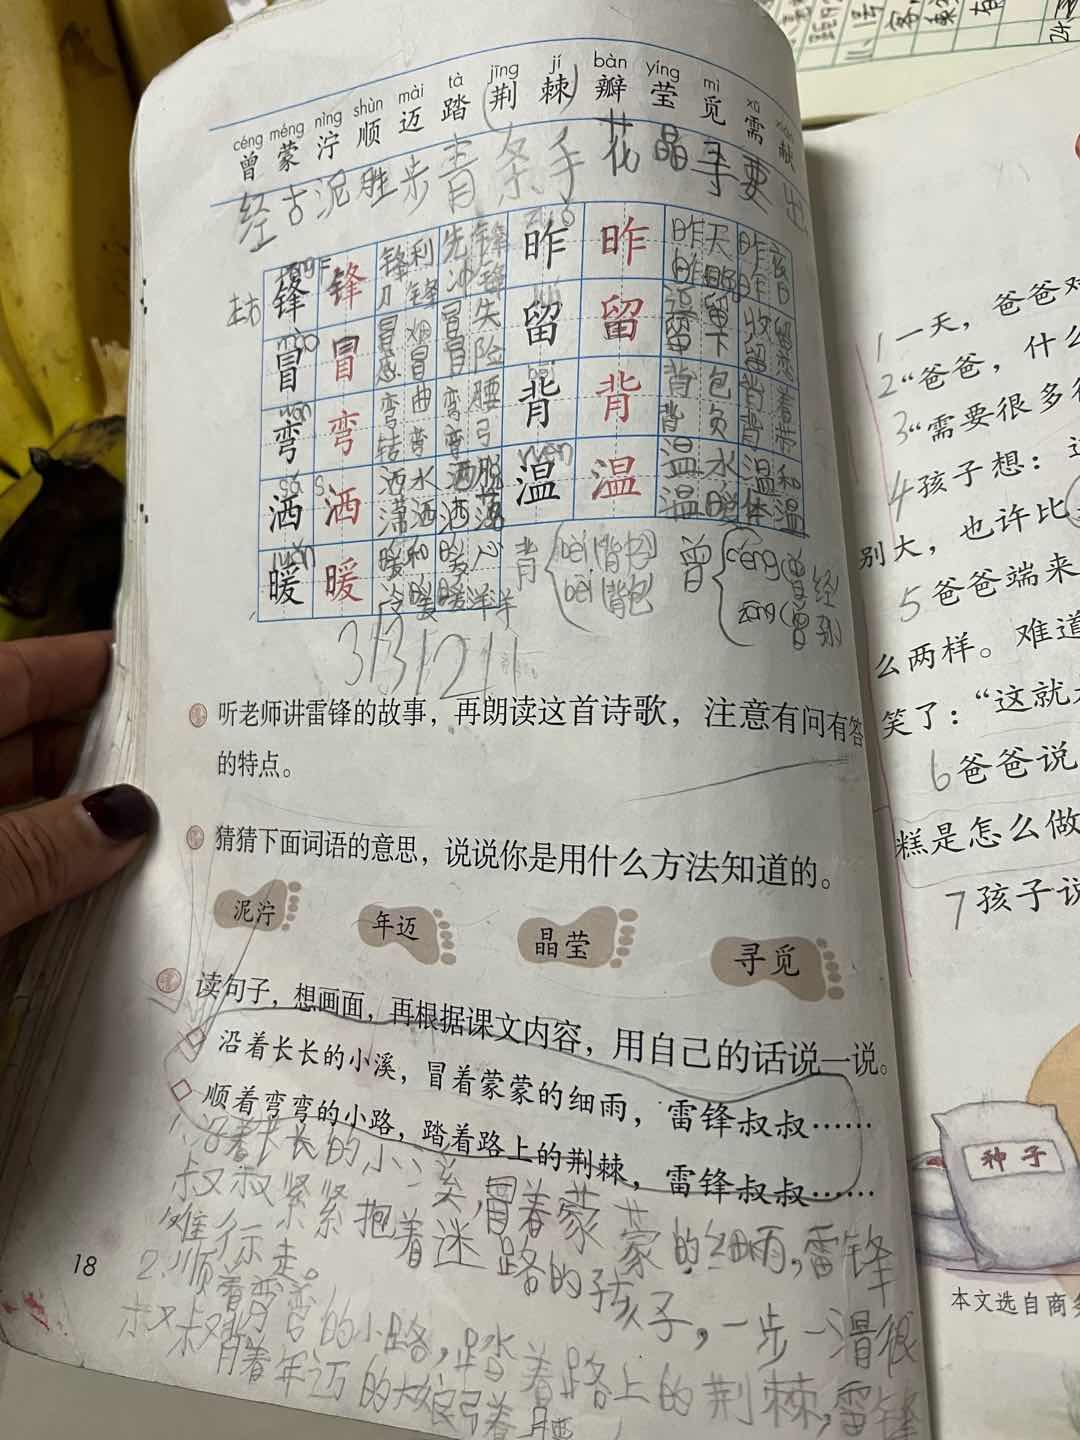 céng méng nìng shùn mài tà jīng jí bàn yíng mì xū
曾 蒙 泞 顺 迈 踏 荆 棘 瓣 莹 觅 需 献
经 古 泥 胜 步 青 条 手 花 晶 寻 要 出
锋 锋 锋利 先锋 昨 昨 昨天 昨夜
刀锋 冲锋
左右
冒 冒 冒烟 冒失 留 留 留下 收留
感冒 冒险
弯 弯 弯曲 弯腰 背 背 背包 背着
转弯 弯弓 背负 背带
洒 洒 洒水 洒脱 温 温 温水 温和
潇洒 洒落 温暖 体温
暖 暖 暖和 暖心
冷暖 暖洋洋
背 bēi(背包) bèi(背包)
曾 céng(曾经) zēng(曾孙)
听老师讲雷锋的故事，再朗读这首诗歌，注意有问有答
的特点。
猜猜下面词语的意思，说说你是用什么方法知道的。
泥泞 年迈 晶莹 寻觅
读句子，想画面，再根据课文内容，用自己的话说一说。
◇ 沿着长长的小溪，冒着蒙蒙的细雨，雷锋叔叔……
◇ 顺着弯弯的小路，踏着路上的荆棘，雷锋叔叔……
1.沿着长长的小溪，冒着蒙蒙的细雨，雷锋
叔叔紧紧抱着迷路的孩子，一步一滑很
难行走。
2.顺着弯弯的小路，踏着路上的荆棘，雷锋
叔叔背着年迈的大娘弓着腰
18
1 一天，爸爸对
2 “爸爸，什么
3 “需要很多很
4 孩子想：这
别大，也许比
5 爸爸端来
么两样。难道
笑了：“这就
6 爸爸说
糕是怎么做
7 孩子说
种子
本文选自商务